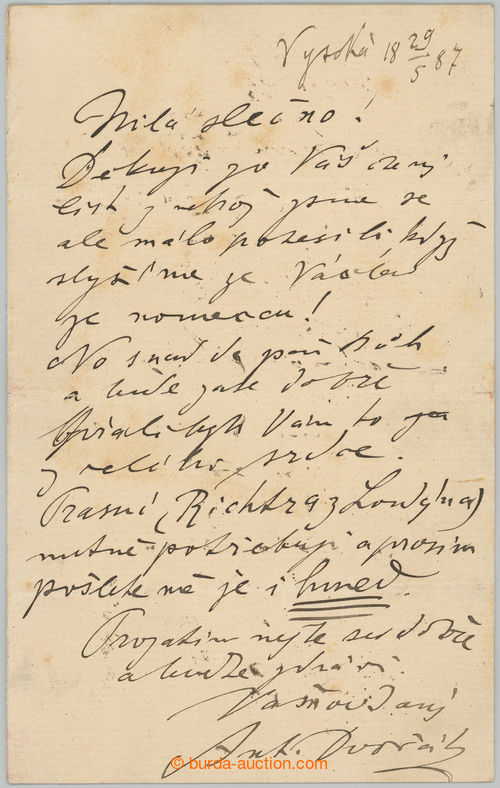 Vysoká 18 29/5 87
Milá slečno!
Děkuji za Váš cený
list z něhož jsme se
ale málo potěšili když
slyšíme že Václav
je nemocen!
No snad dá pán Bůh
a bude zase dobře
Přáli bych Vám to
z celého srdce.
Psaní (Richtra z Londýna)
nutně potřebuji a prosím
pošlete mě je i hned.
Prozatím mějte se dobře
a buďte zdrávi
Váš oddaný
Ant. Dvořák
© burda-auction.com